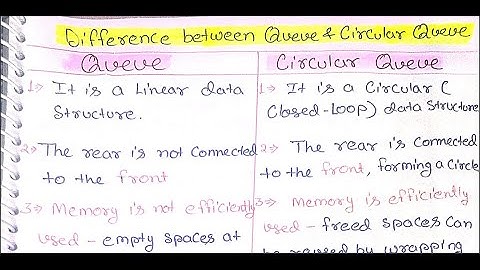 Difference between Queue & Circular Queue
Queue
1⇒ It is a Linear data
Structure.
2⇒ The rear is not Connected
to the front
3⇒ Memory is not efficiently
used - empty spaces at
Circular Queue
1⇒ It is a Circular (
Closed-Loop) data Structure
2⇒ The rear is Connected
to the front, forming a Circle
3⇒ Memory is efficiently
used - freed spaces can
be reused by wrapping